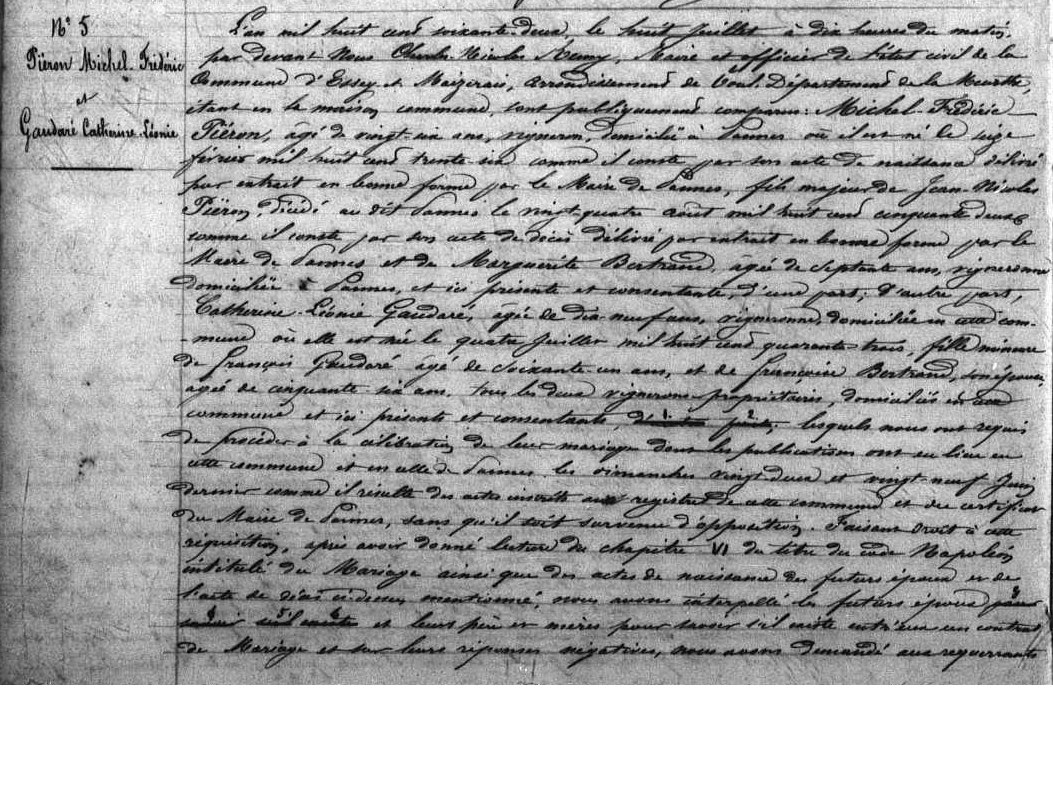 N° 5
Piéron Michel-Frédéric
et
Gaudaré Catherine-Léonie
L'an mil huit cent soixante-deux, le huit Juillet à dix heures du matin,
par devant Nous Charles-Nicolas Remy, Maire et officier de l'état civil de la
Commune d'Essey et Maizerais, arrondissement de Toul, Département de la Meurthe,
étant en la maison commune, sont publiquement comparus: Michel-Frédéric
Piéron, âgé de vingt-six ans, vigneron, domicilié à Pannes où il est né le seize
février mil huit cent trente-six comme il conste par son acte de naissance délivré
par extrait en bonne forme par le Maire de Pannes, fils majeur de Jean-Nicolas
Piéron, décédé au dit Pannes le vingt-quatre août mil huit cent cinquante deux
comme il conste par son acte de décès délivré par extrait en bonne forme par le
Maire de Pannes et de Marguerite Bertrand, âgée de septante ans, vigneronne
domiciliée à Pannes, et ici présente et consentante, d'une part; d'autre part,
Catherine-Léonie Gaudaré, âgée de dix-neuf ans, vigneronne, domiciliée en cette com-
-mune où elle est née le quatre Juillet mil huit cent quarante-trois, fille mineure
de François Gaudaré âgé de soixante-un ans, et de Françoise Bertrand, son épouse,
âgée de cinquante-six ans, tous les deux vignerons-propriétaires, domiciliés en cette
commune et ici présents et consentants, 1 2 lesquels nous ont requis
de procéder à la célébration de leur mariage dont les publications ont eu lieu en
cette commune et en celle de Pannes les dimanches vingt-deux et vingt-neuf Juin
dernier comme il résulte des actes inscrits aux registres de cette commune et du certificat
du Maire de Pannes, sans qu'il soit survenu d'opposition. Faisant droit à cette
réquisition, après avoir donné lecture du chapitre VI du titre du code Napoléon
intitulé du Mariage ainsi que des actes de naissance des futurs époux et de
l'acte de décès ci-dessus mentionné, nous avons interpellé les futurs époux pour 3
4 savoir 5 s'il 6 existe et leurs père et mères pour savoir s'il existe entr'eux un contrat
de Mariage et sur leurs réponses négatives, nous avons demandé aux requérants